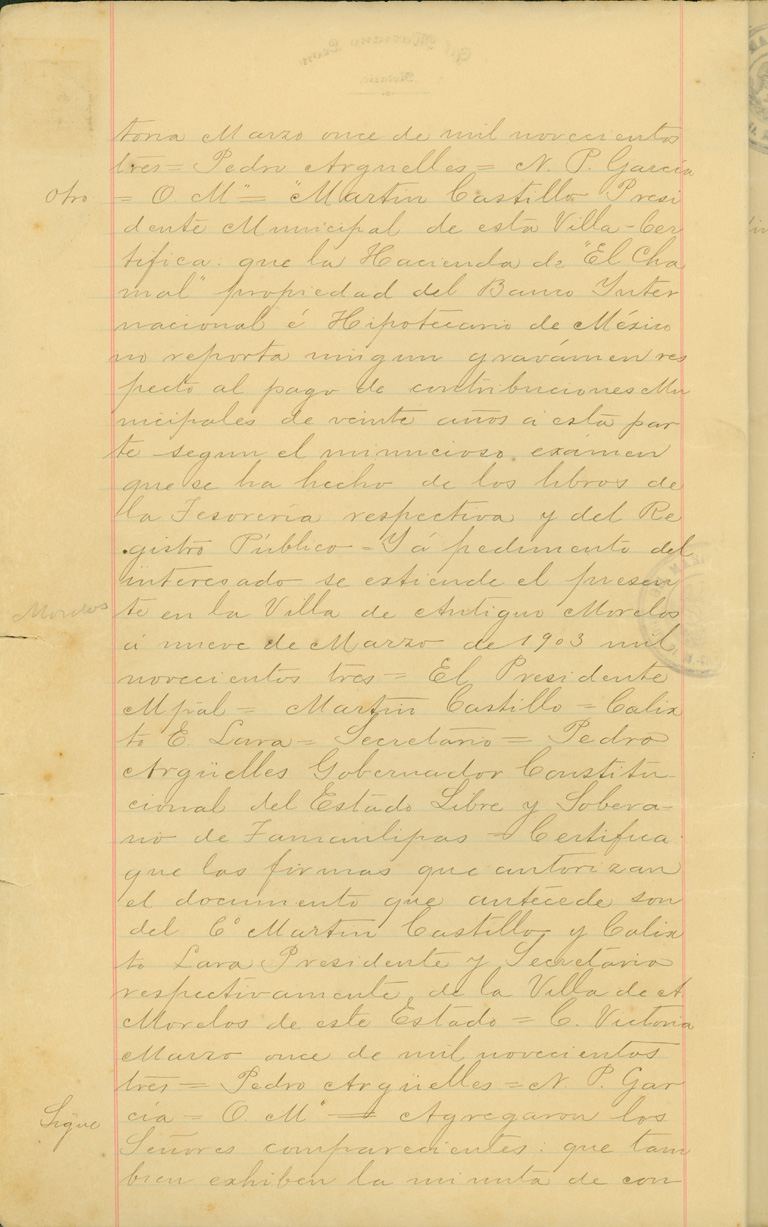 toria Marzo once de mil novecientos
tres = Pedro Arguelles = N. P. García
Otro
= O. M" = "Martin Castillo Presi
dente Municipal de esta Villa - Cer
tifica: que la Hacienda de "El Cha
mal" propiedad del Banco Inter
nacional é Hipotecario de México
no reporta ningun gravámen res
pecto al pago de contribuciones Mu
nicipales de veinte años a esta par
te segun el minucioso exámen
que se ha hecho de los libros de
la Tesorería respectiva y del Re
gistro Público = Y á pedimento del
interesado se extiende el presen
Morelos
te en la Villa de Antiguo Morelos
á nueve de Marzo de 1903 mil
novecientos tres = El Presidente
Mpal = Martin Castillo = Calix
to E. Lara = Secretario = Pedro
Argüelles Gobernador Constitu-
cional del Estado Libre y Sobera-
no de Tamaulipas = Certifica:
que las firmas que autorizan
el documento que antecede son
del C° Martin Castillo y Calix
to Lara Presidente y Secretario
respectivamente, de la Villa de A.
Morelos de este Estado = C. Victoria
Marzo once de mil novecientos
tres = Pedro Argüelles = N. P. Gar
cía = O. M" = Agregaron los
Sigue
Señores comparecientes: que tam
bien exhiben la minuta de con